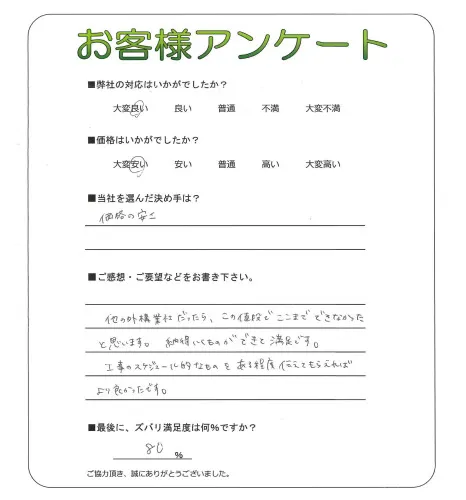 お客様アンケート
■弊社の対応はいかがでしたか？
大変良い 良い 普通 不満 大変不満
■価格はいかがでしたか？
大変安い 安い 普通 高い 大変高い
■当社を選んだ決め手は？
価格の安さ
■ご感想・ご要望などをお書き下さい。
他の外構業社だったら、この値段でここまでできなかった
と思います。納得いくものができて満足です。
工事のスケジュール的なものをある程度伝えてもらえれば
より良かったです。
■最後に、ズバリ満足度は何%ですか？
80 %
ご協力頂き、誠にありがとうございました。